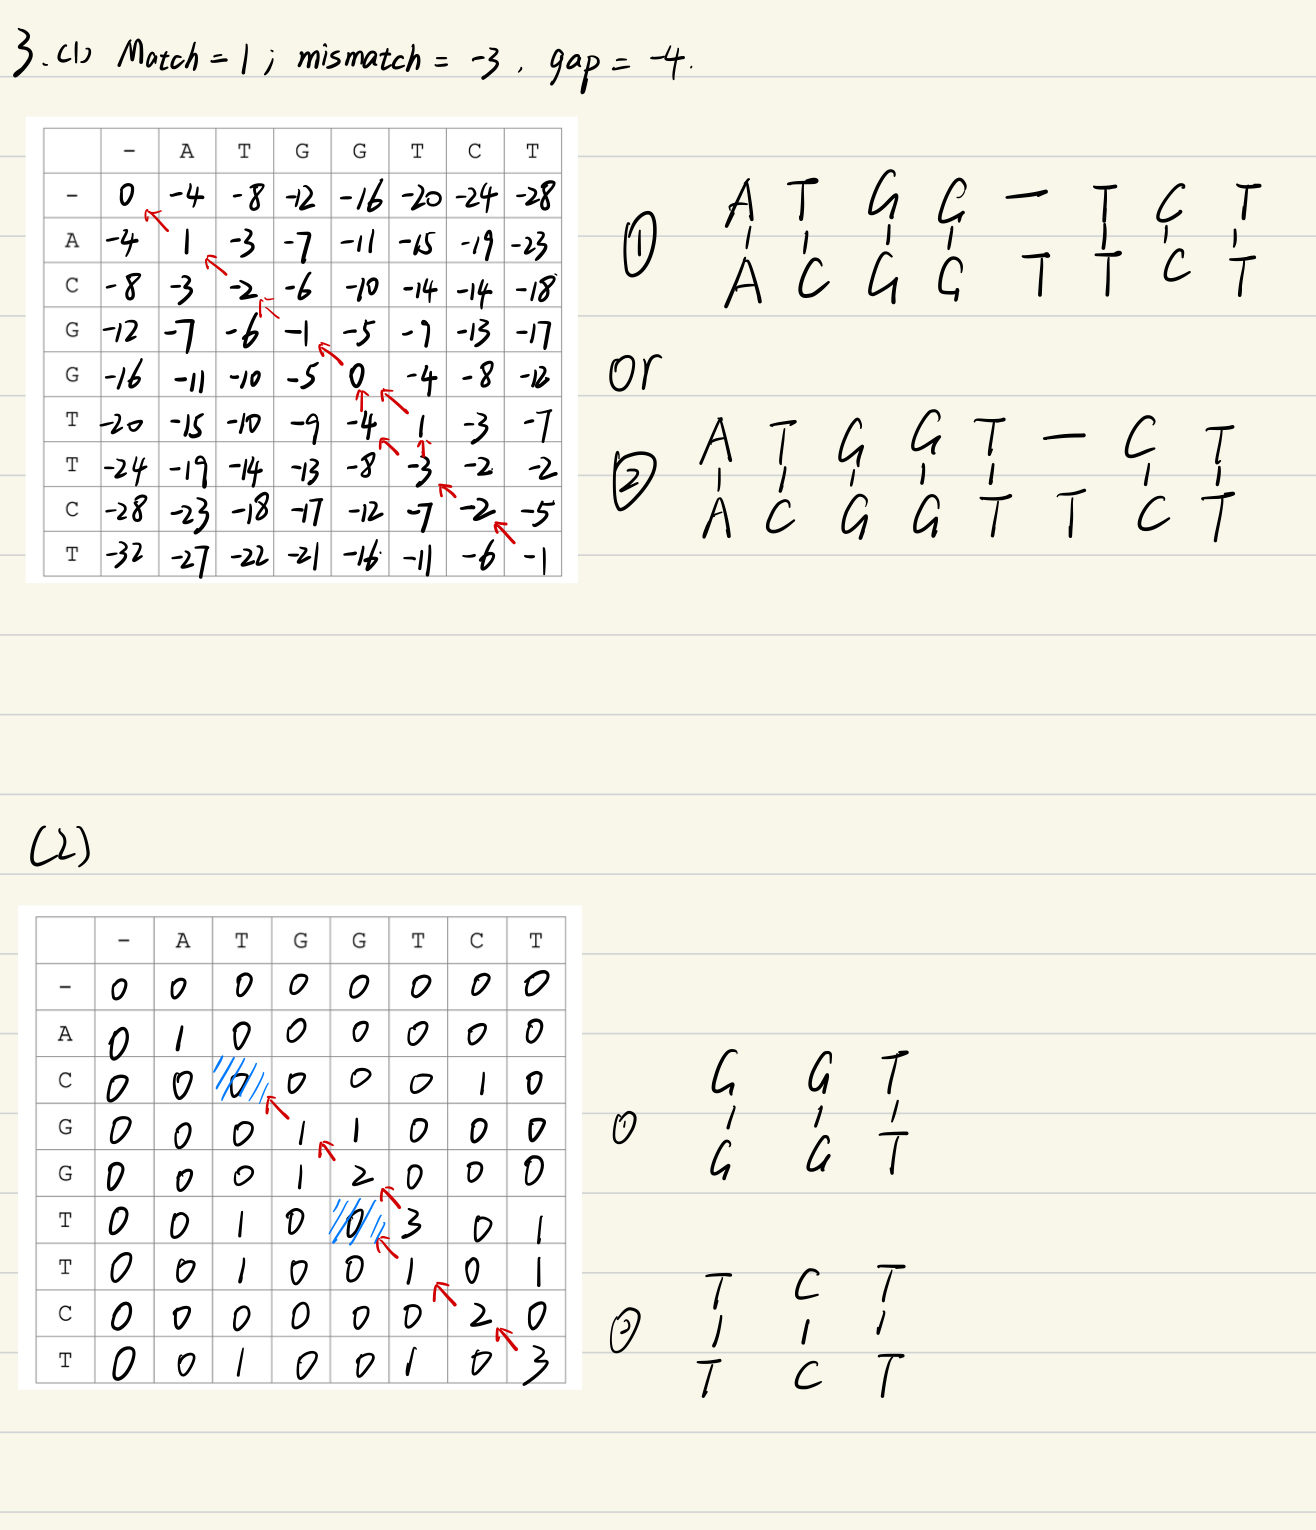 3. (1) Match = 1 ; mismatch = -3 , gap = -4.
- A T G G T C T
- 0 -4 -8 -12 -16 -20 -24 -28
A -4 1 -3 -7 -11 -15 -19 -23
C -8 -3 -2 -6 -10 -14 -14 -18
G -12 -7 -6 -1 -5 -9 -13 -17
G -16 -11 -10 -5 0 -4 -8 -12
T -20 -15 -10 -9 -4 1 -3 -7
T -24 -19 -14 -13 -8 -3 -2 -2
C -28 -23 -18 -17 -12 -7 -2 -5
T -32 -27 -22 -21 -16 -11 -6 -1
① A T G G — T C T
A C G G T T C T
or
② A T G G T — C T
A C G G T T C T
(2)
- A T G G T C T
- 0 0 0 0 0 0 0 0
A 0 1 0 0 0 0 0 0
C 0 0 0 0 0 0 1 0
G 0 0 0 1 1 0 0 0
G 0 0 0 1 2 0 0 0
T 0 0 1 0 0 3 0 1
T 0 0 1 0 0 1 0 1
C 0 0 0 0 0 0 2 0
T 0 0 1 0 0 1 0 3
① G G T
G G T
② T C T
T C T